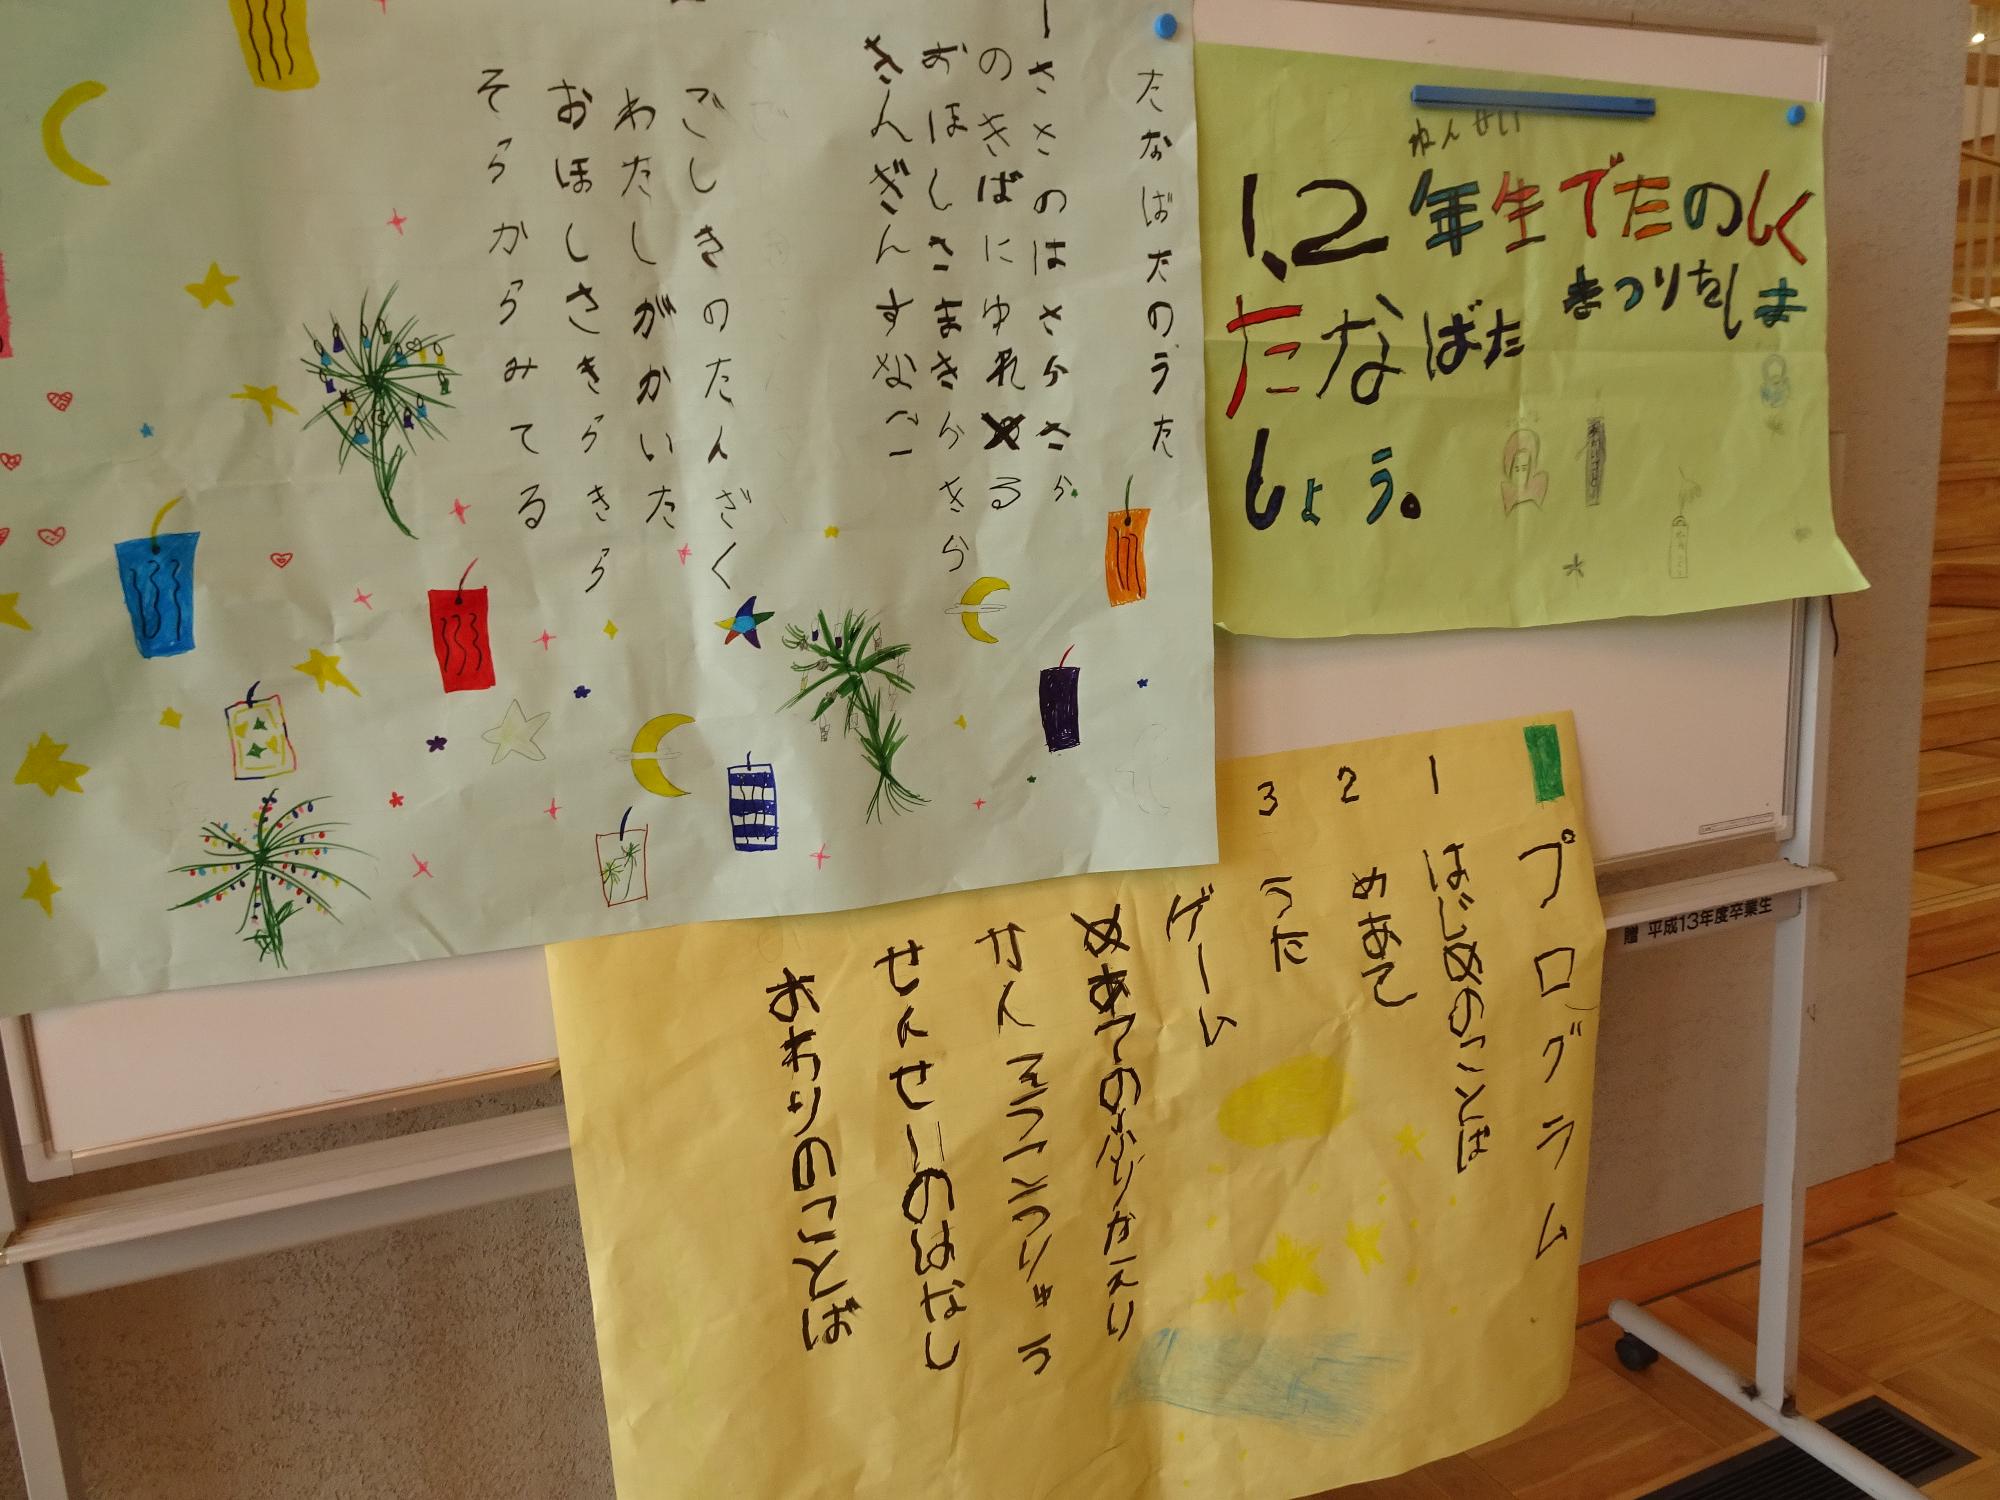 たなばたのうた
ーささのはさらさら
のきばにゆれる
おほしさまきらきら
きんぎんすなご
ごしきのたんざく
わたしがかいた
おほしさきらきら
そらからみてる
ねんせい
1、2年生でたのしく
たなばたまつりをしま
しょう。
プログラム
1 はじめのことば
2 めあて
3 うた
ゲーム
めあてのふりかえり
かんそうこうりゅう
せんせいのはなし
おわりのことば
贈 平成13年度卒業生